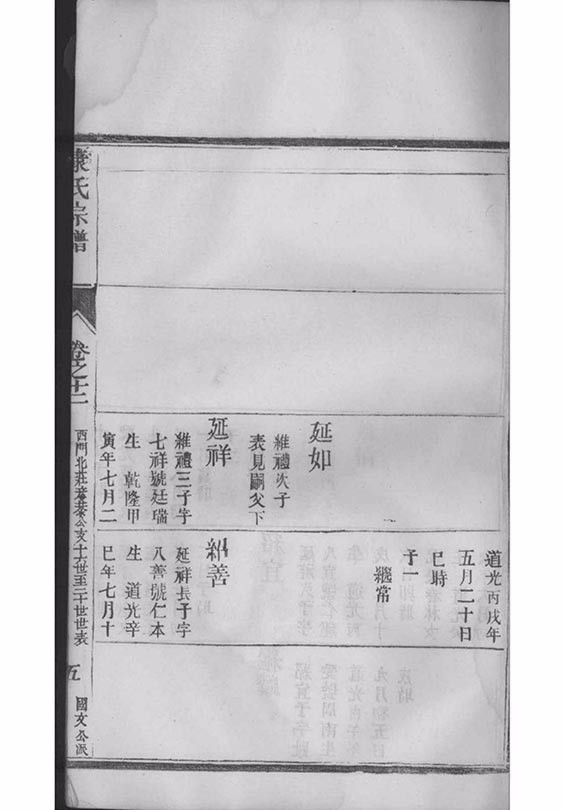 延如
維禮次子
表見嗣父下
延祥
維禮三子字
七祥號廷瑞
生 乾隆甲
寅年七月二
道光丙戌年
五月二十日
巳時
子一
繼常
紹善
延祥長子字
八善號仁本
生 道光辛
巳年七月十
康氏宗譜
卷之十二
西門北莊葊葊公支十六世至二十世世表
五
國文公派